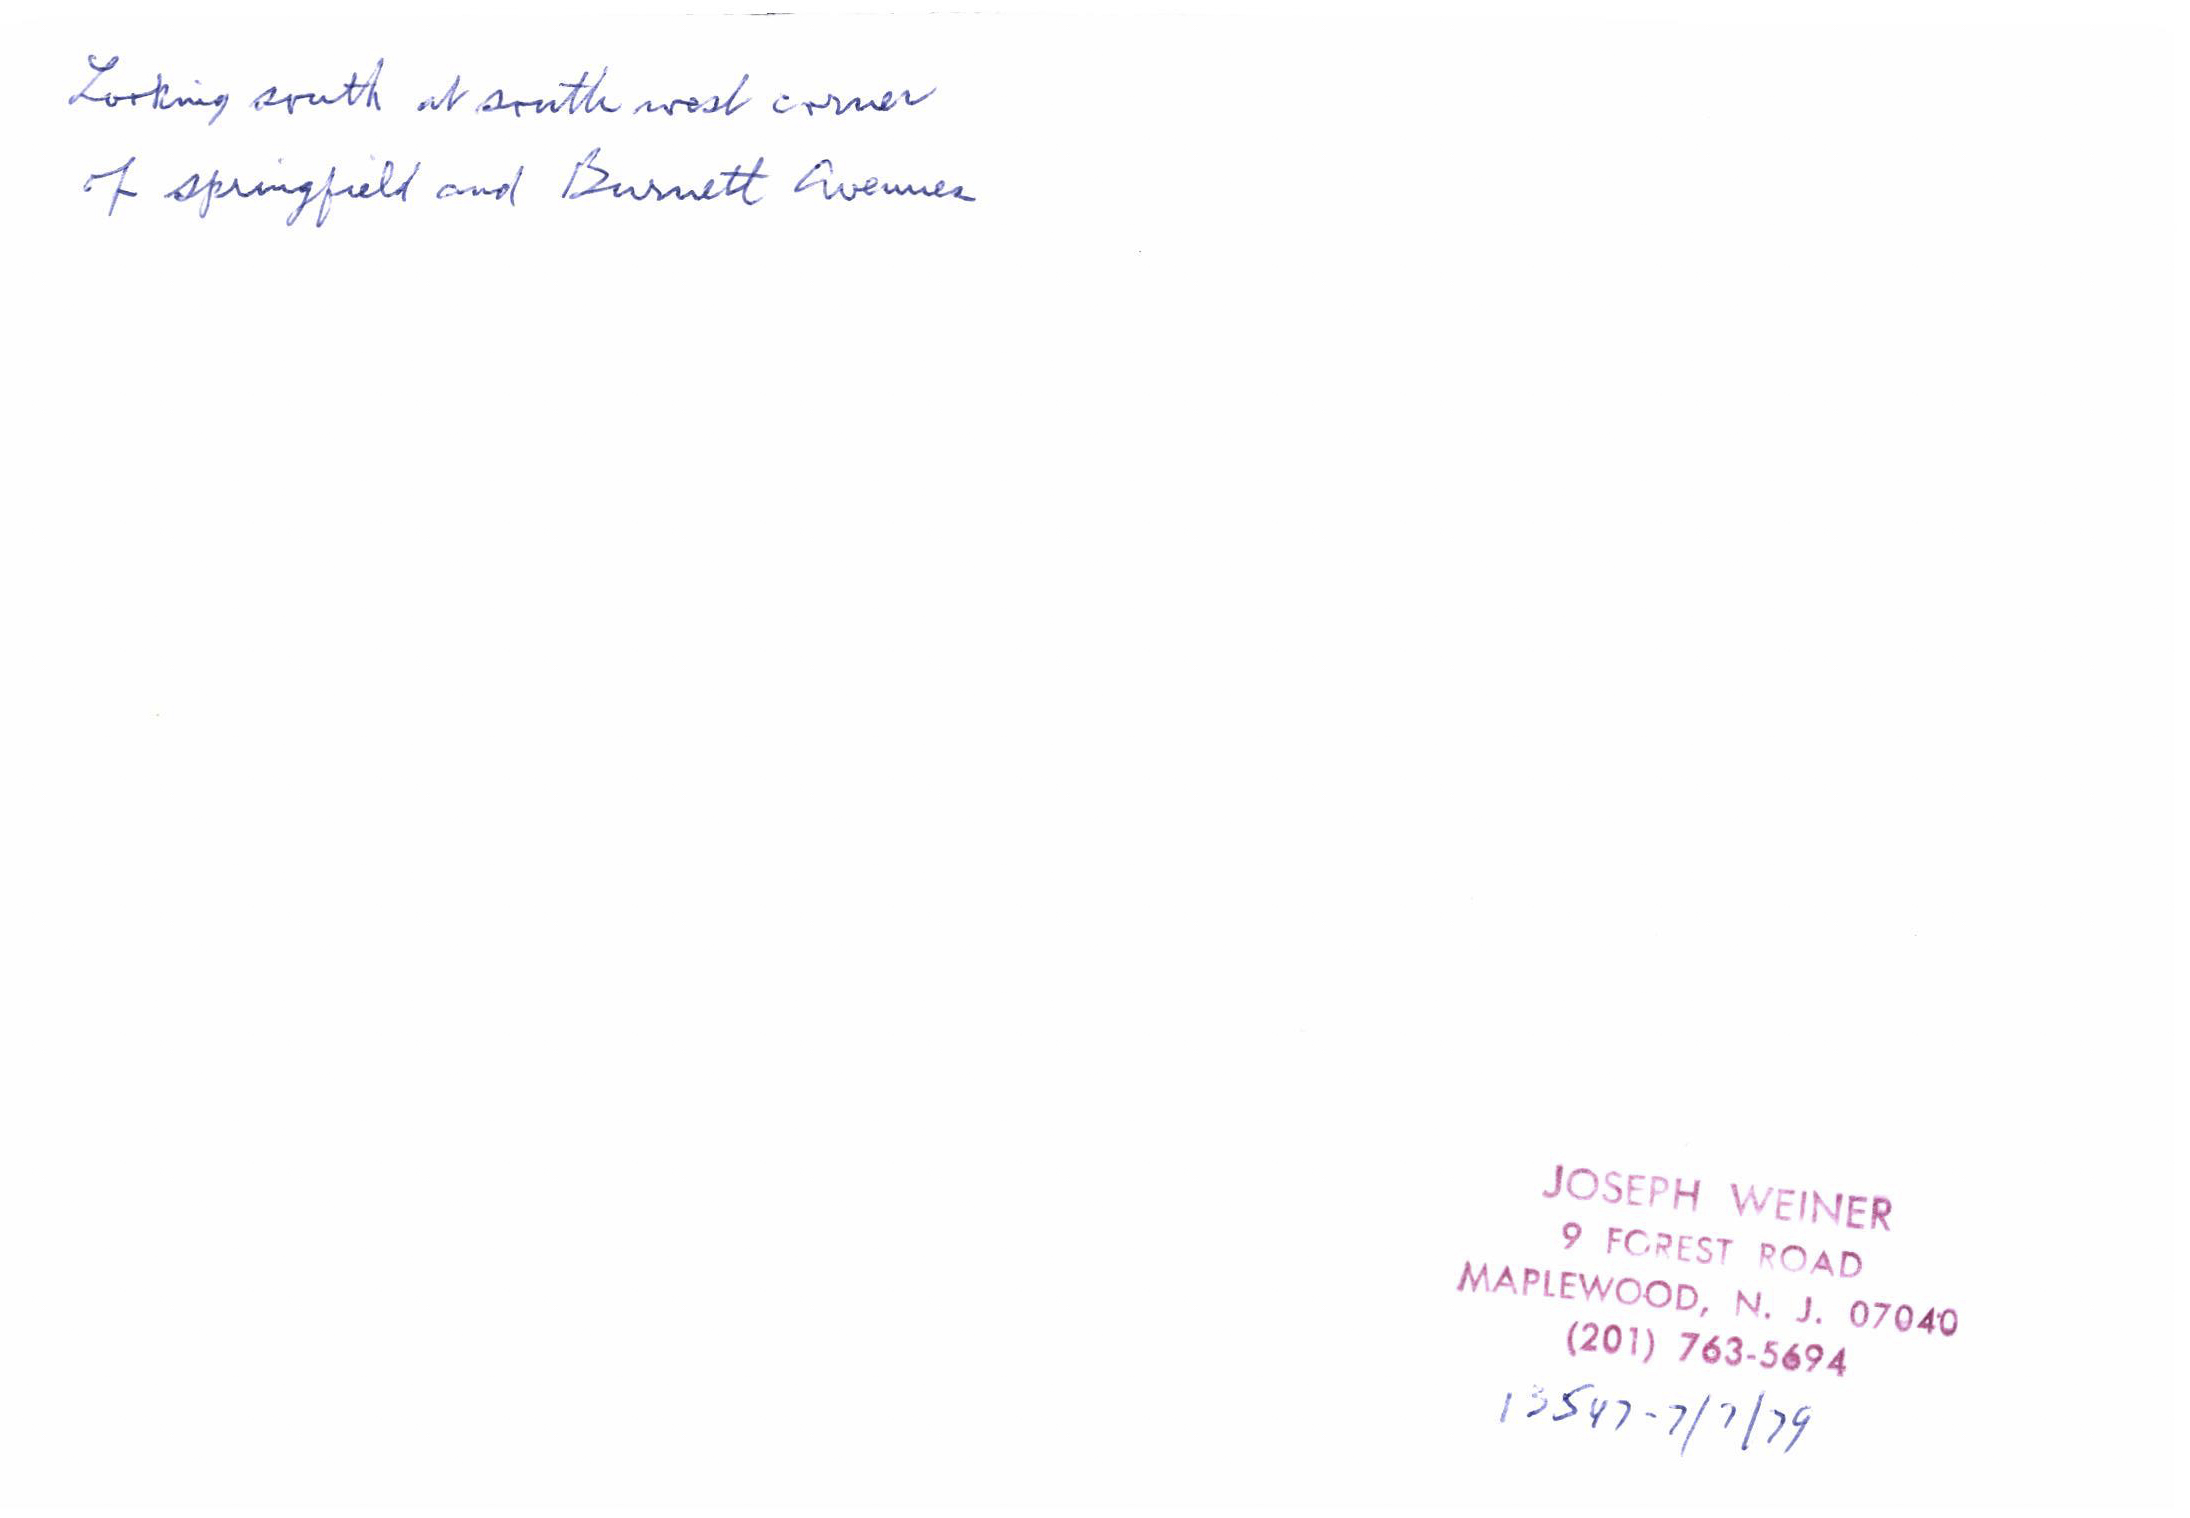 Looking south at south west corner
of springfield and Burnett Avenues
JOSEPH WEINER
9 FOREST ROAD
MAPLEWOOD, N. J. 07040
(201) 763-5694
13547-7/7/79